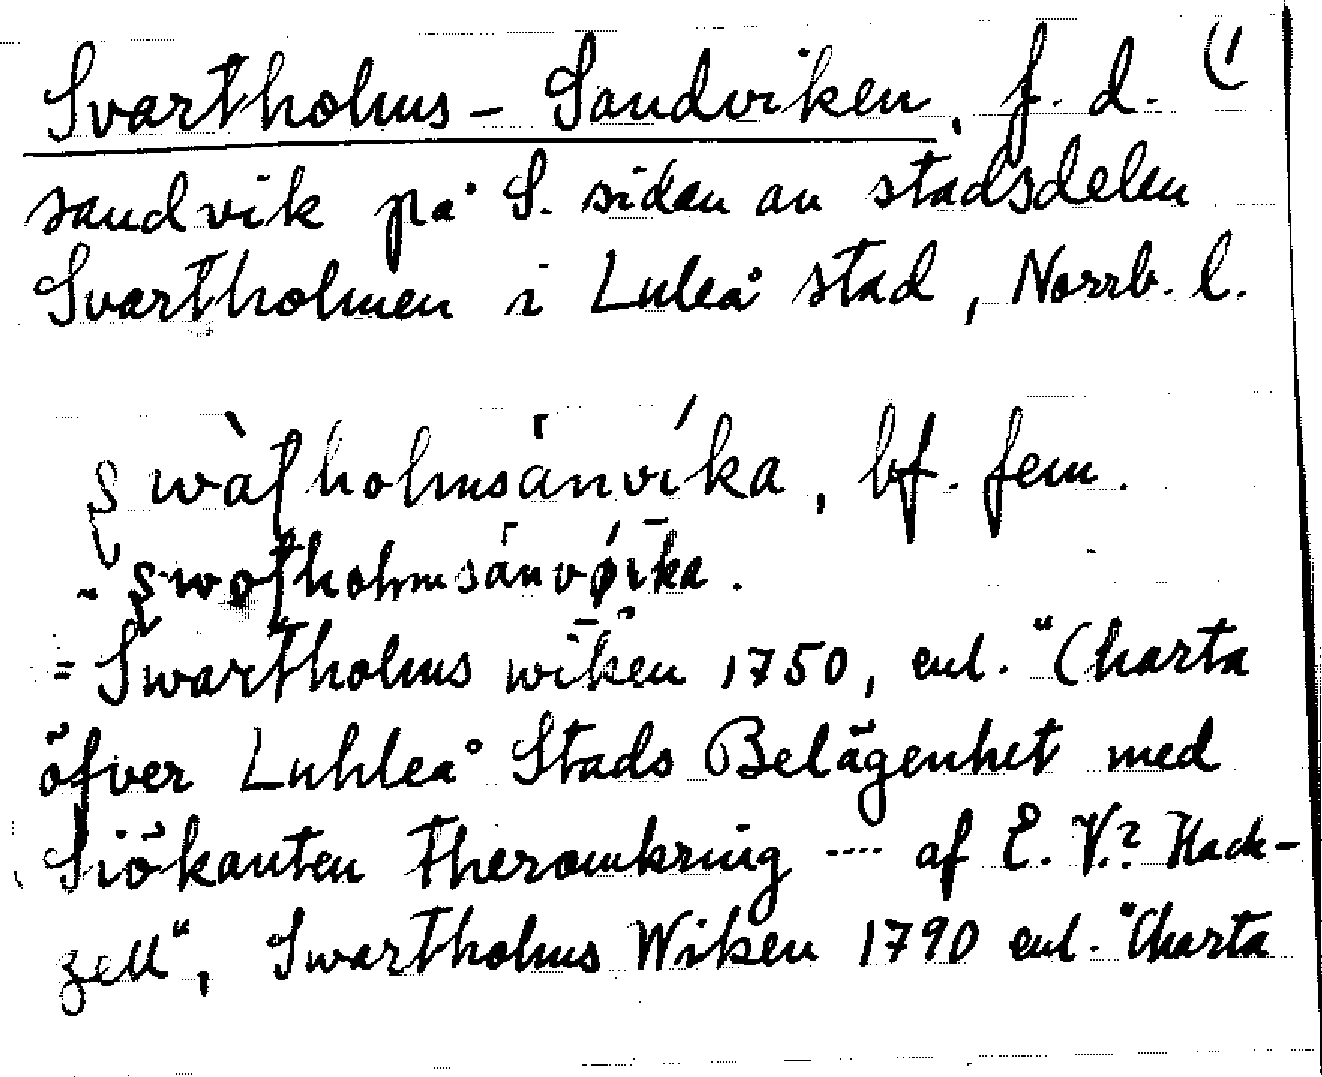 Svartholms-Sandviken, f. d. (1
sandvik på S. sidan av stadsdelen
Svartholmen i Luleå stad, Norrb. l.
holmsanvika, bf. fem.
= Swartholms wiken 1750, enl. "Charta
öfver Luhleå Stads Belägenhet med
Siökanten theromkring .... af E. V.? Hack-
zell", Swartholms Wiken 1790 enl. "Charta